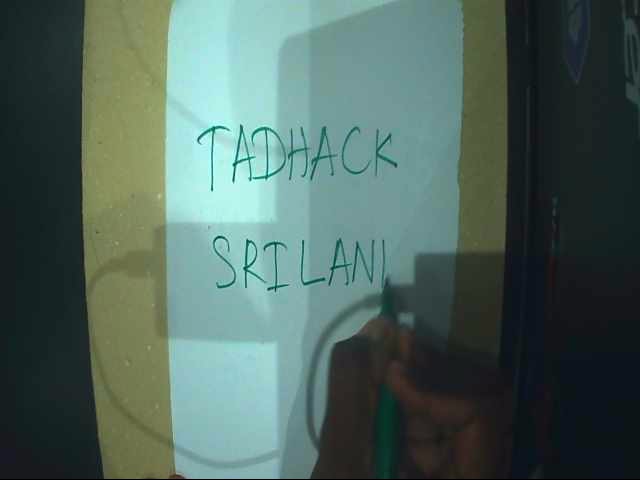 TADHACK
SRILAN